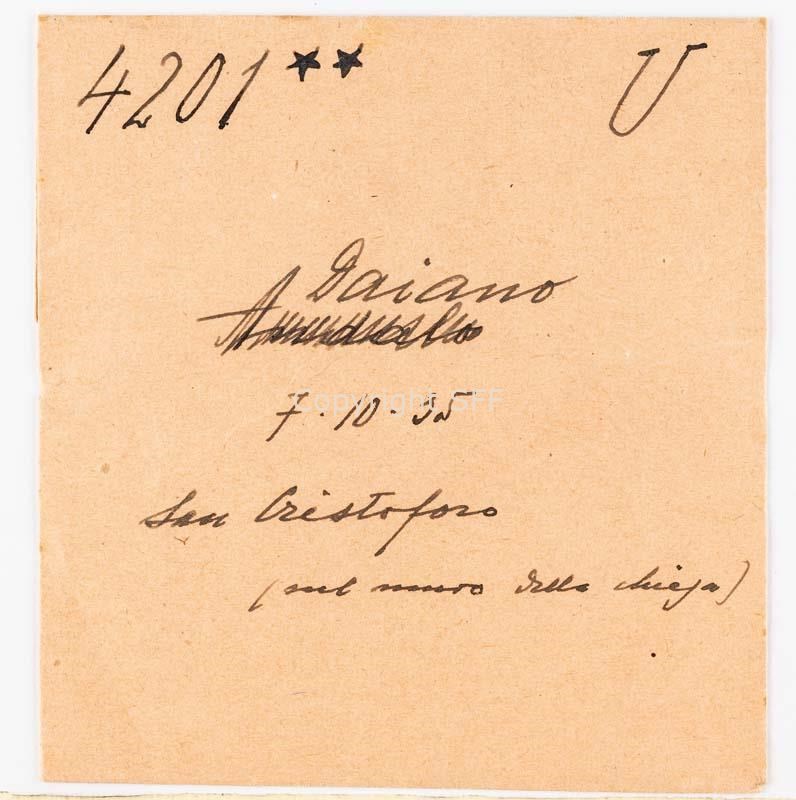 4201** U
Daiano
7.10.35
San Cristoforo
(sul muro della chiesa)
Copyright SFF